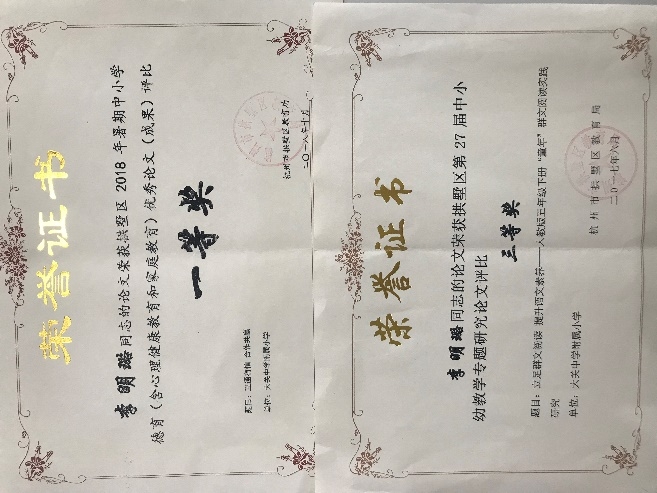 荣誉证书
李明璐同志的论文荣获拱墅区 2018 年暑期中小学
德育（含心理健康教育和家庭教育）优秀论文（成果）评比
一等奖
单位：大关中学附属小学
杭州市拱墅区教育局
二〇一八年十月
荣誉证书
李明璐同志的论文荣获拱墅区第 27 届中小
幼教学专题研究论文评比
三等奖
题目：立足群文阅读 提升语文素养——人教版五年级下册“童年”群文阅读实践
研究
单位：大关中学附属小学
杭州市拱墅区教育局
二〇一七年六月